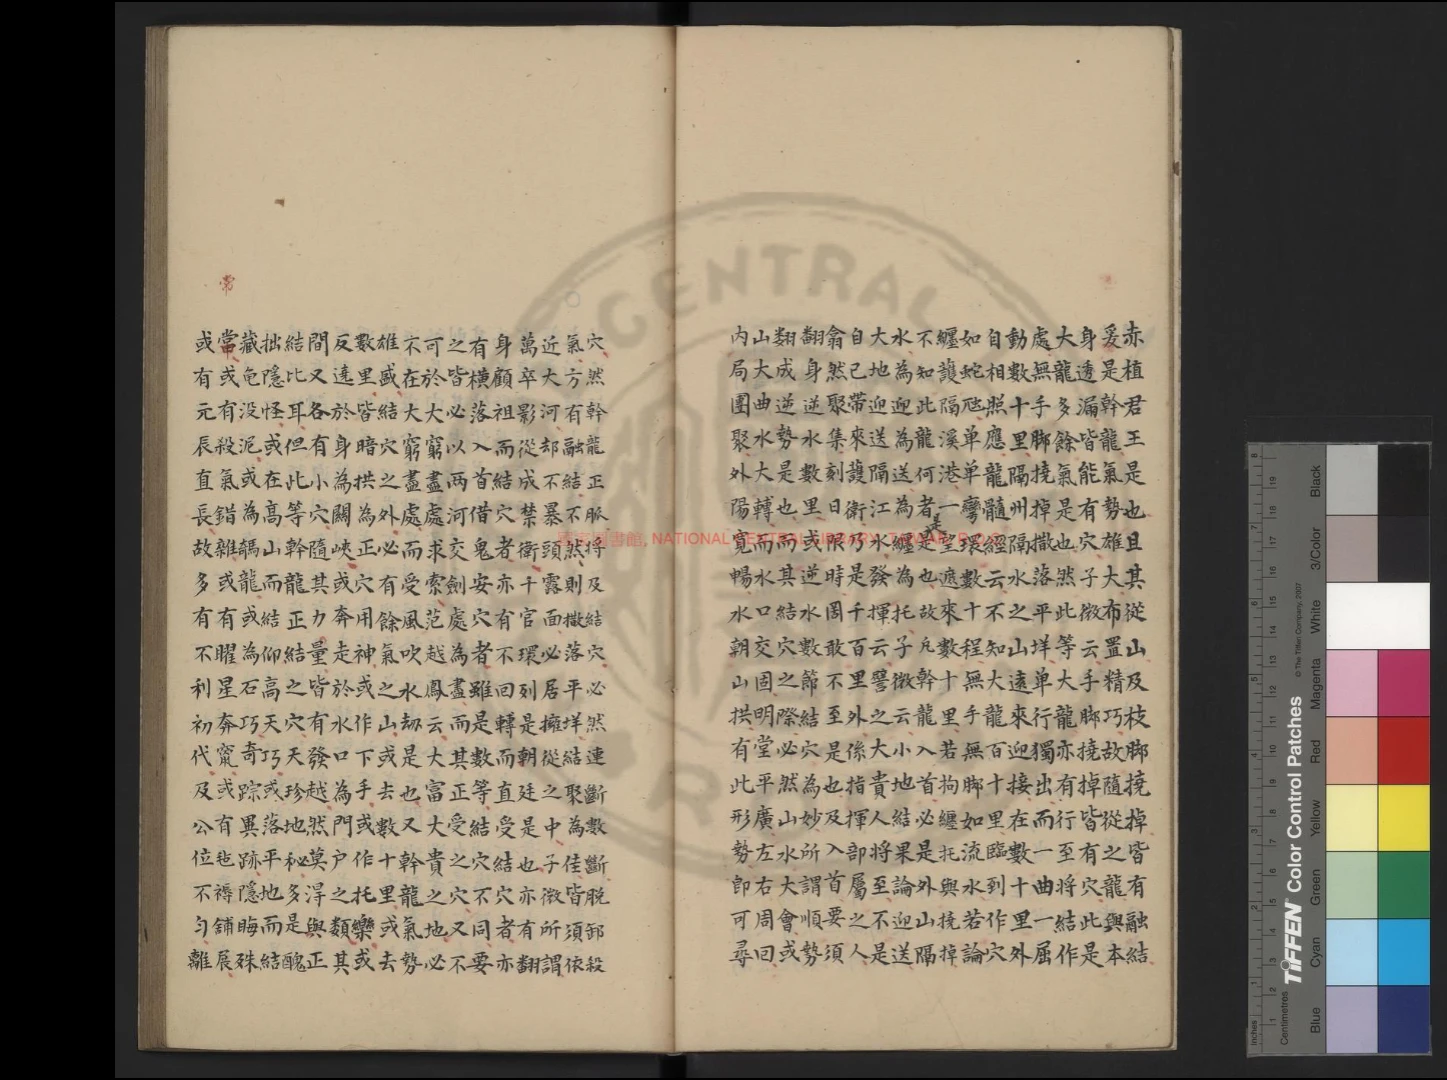 赤植君王是也且其從山及枝脚撓掉皆有融結
爰是幹龍氣勢雄大布置精巧故隨從之龍與本
身透漏皆能有穴子微云手脚撓掉皆有穴此是
大龍多餘氣是也然此等大龍亦有行至將結作
處無手脚撓掉撒落平垟单行獨出而一曲一屈
動數十里隔州隔水之山遠來迎接在數十里外
自相照應龍髓經云不知大龍百十里臨到作穴
如蛇虺单单彎環數十程無手無脚如流水若論
纏護隔溪港一望遮來數十里若拘纏托與撓掉
不知此龍何者是是也故凢幹龍入首必是外山隔
水為迎為送為纏為托子微云小地結果論迎送
大地迎送隔江水發揮云譬之大貴人將至不是
自已帶來護衛乃是千百里外係指揮部屬之人
翕然聚集刻日限時罔敢不至是也及入首要須
翻身逆水數里或逆水數節結穴為妙所謂順勢
翻成逆勢是也而其結穴之際必然山水大會或
山大曲水大轉而水口交固明堂平廣左右周回
内局團聚外陽寬暢水朝山拱有此形勢即可尋
穴然幹龍正脉將及結穴必然連斷數斷脱卸殺
氣方有融結不然則撒落平垟結聚為佳皆須依
近大河却不暴頭露面必居擁從之中子微所謂
萬卒影從成禁衛千官環列是朝廷是也亦有翻
身顧祖而結穴者亦有不回轉而直受結穴者亦
有横落入首借鬼安穴者雖是數等結穴不同要
之皆必以两河交劍處為盡而其正受之穴又不
可於大窮盡處求索范越鳳云大富大貴之地必
不在大窮盡處而受風吹水劫是也又幹龍氣勢
雄盛結穴之外必有餘氣之山或去數十里或去
數里皆暗拱為正穴用神或作下手或作托樂或
反逺於身為關峽或奔走於水口為門户之類其
間又各有小穴隨其力量皆有發越然莫淂與正
結比耳但此等幹龍正結之穴天珍地秘多是醜
拙隱怪或在高山而結仰高天巧或落平地而結
藏龟没泥或為騧龍或為石巧奇踪異跡隱晦殊
當或有殺氣錯雜或有曜星奔竄或有毡褥鋪展
或有元辰直長故多有不利初代及公位不匀離
常
國家圖書館, NATIONAL CENTRAL LIBRARY, TAIWAN, R.O.C.
CENTRAL
R.O.
TIFFEN Color Control Patches
© The Tiffen Company, 2007
Inches
Centimetres
Blue Cyan Green Yellow Red Magenta White 3/Color Black